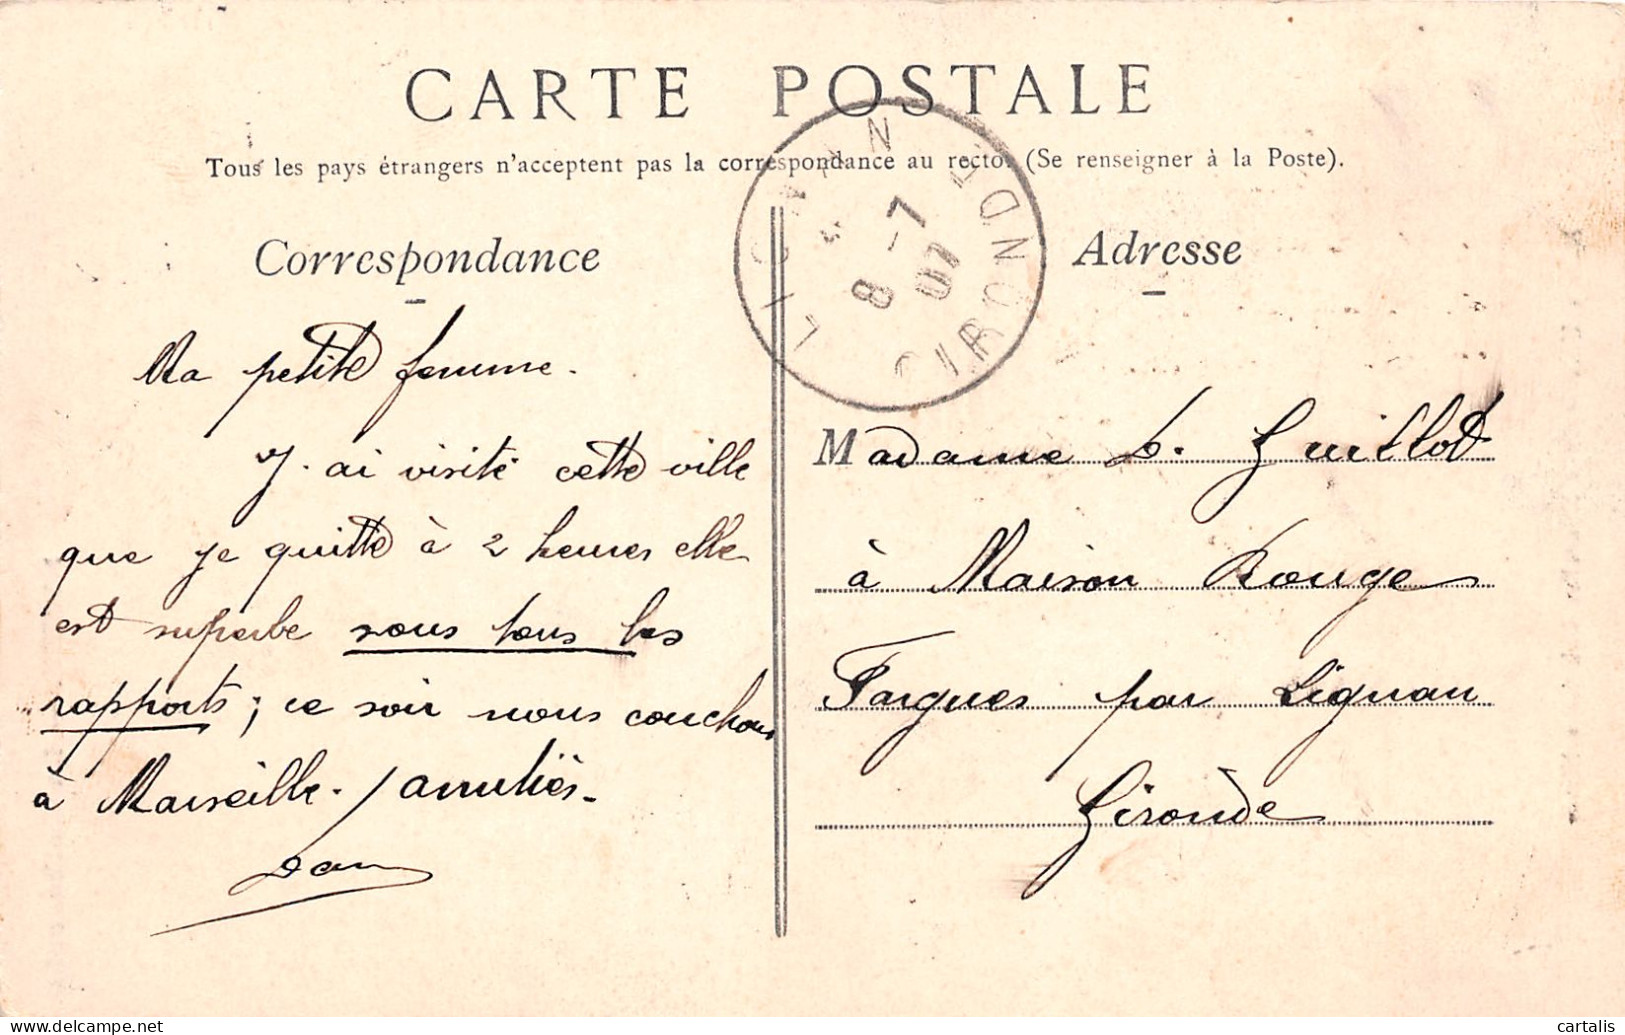 CARTE POSTALE
Tous les pays étrangers n'acceptent pas la correspondance au recto. (Se renseigner à la Poste).
LIGNAN
GIRONDE
8 - 7
07
Correspondance
Ma petite femme.
J'ai visité cette ville
que je quitte à 2 heures elle
est superbe sous tous les
rapports ; ce soir nous couchons
à Marseille. / amitiés.
Dan
Adresse
Madame D. Guillot
à Maison Rouge
Fargues par Lignan
Gironde
delcampe.net
cartalis